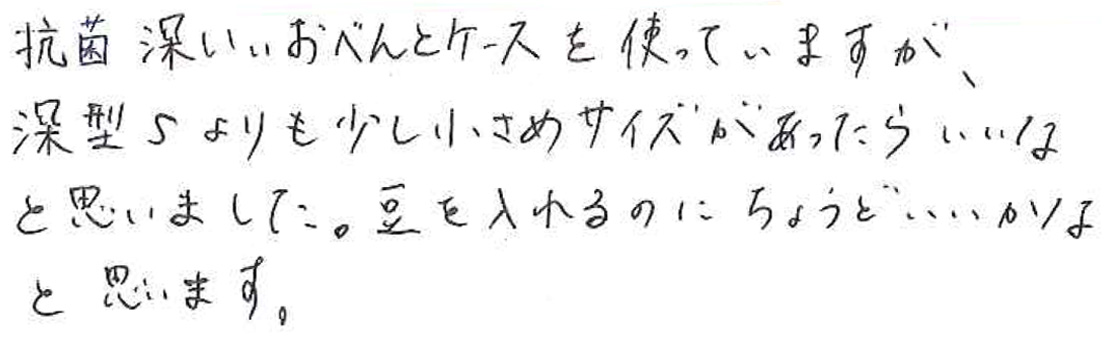 抗菌 深いぃおべんとケースを使っていますが、
深型Sよりも少し小さめサイズがあったらいいな
と思いました。豆を入れるのにちょうどいいかな
と思います。